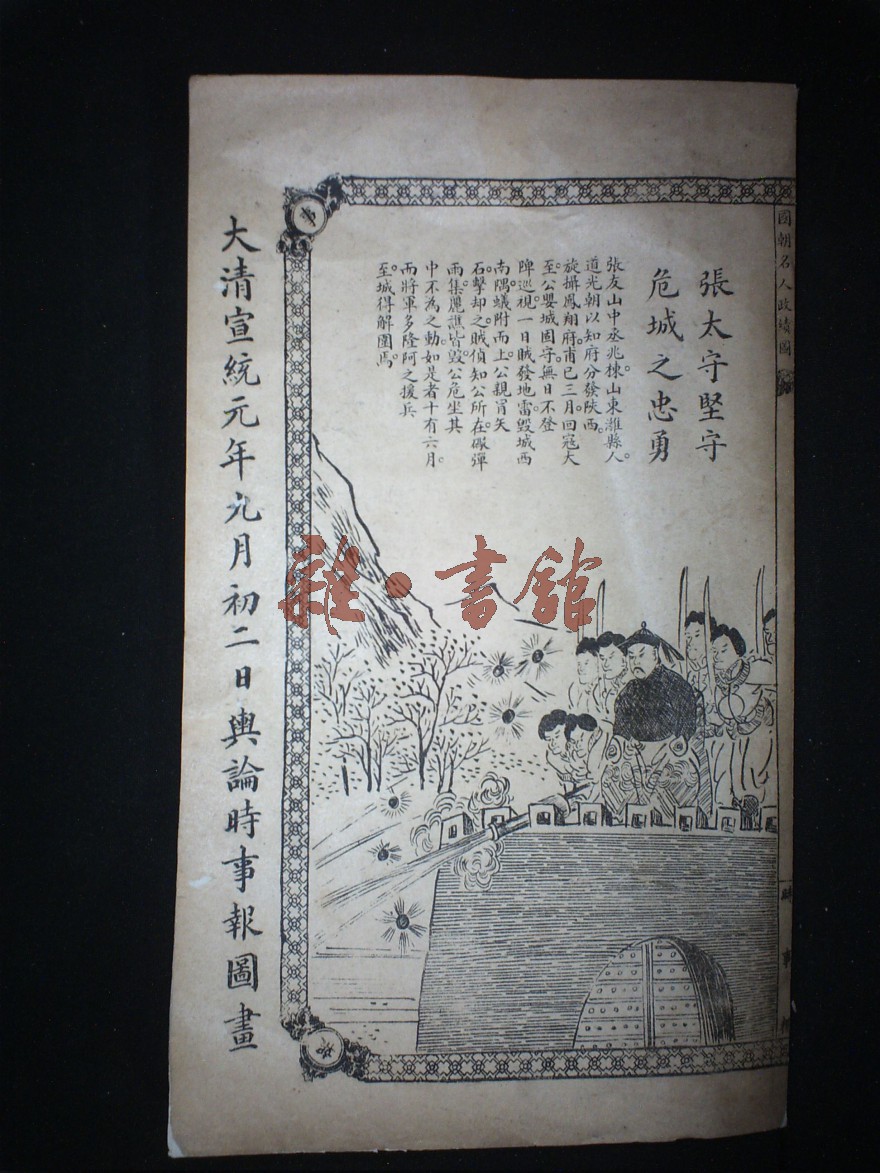 國朝名人政績圖
張太守堅守
危城之忠勇
張友山中丞兆棟。山東濰縣人。
道光朝以知府分發陝西。
旋攝鳳翔府。甫已三月。回寇大
至。公嬰城固守。無日不登
陴巡視。一日賊發地雷。毀城西
南隅。蟻附而上。公親冒矢
石。擊却之。賊偵知公所在。礮彈
雨集。麗譙皆毀。公危坐其
中。不為之動。如是者十有六月。
而將軍多隆阿之援兵
至。城得解圍焉。
大清宣統元年九月初二日輿論時事報圖畫
雜·書館
時事報